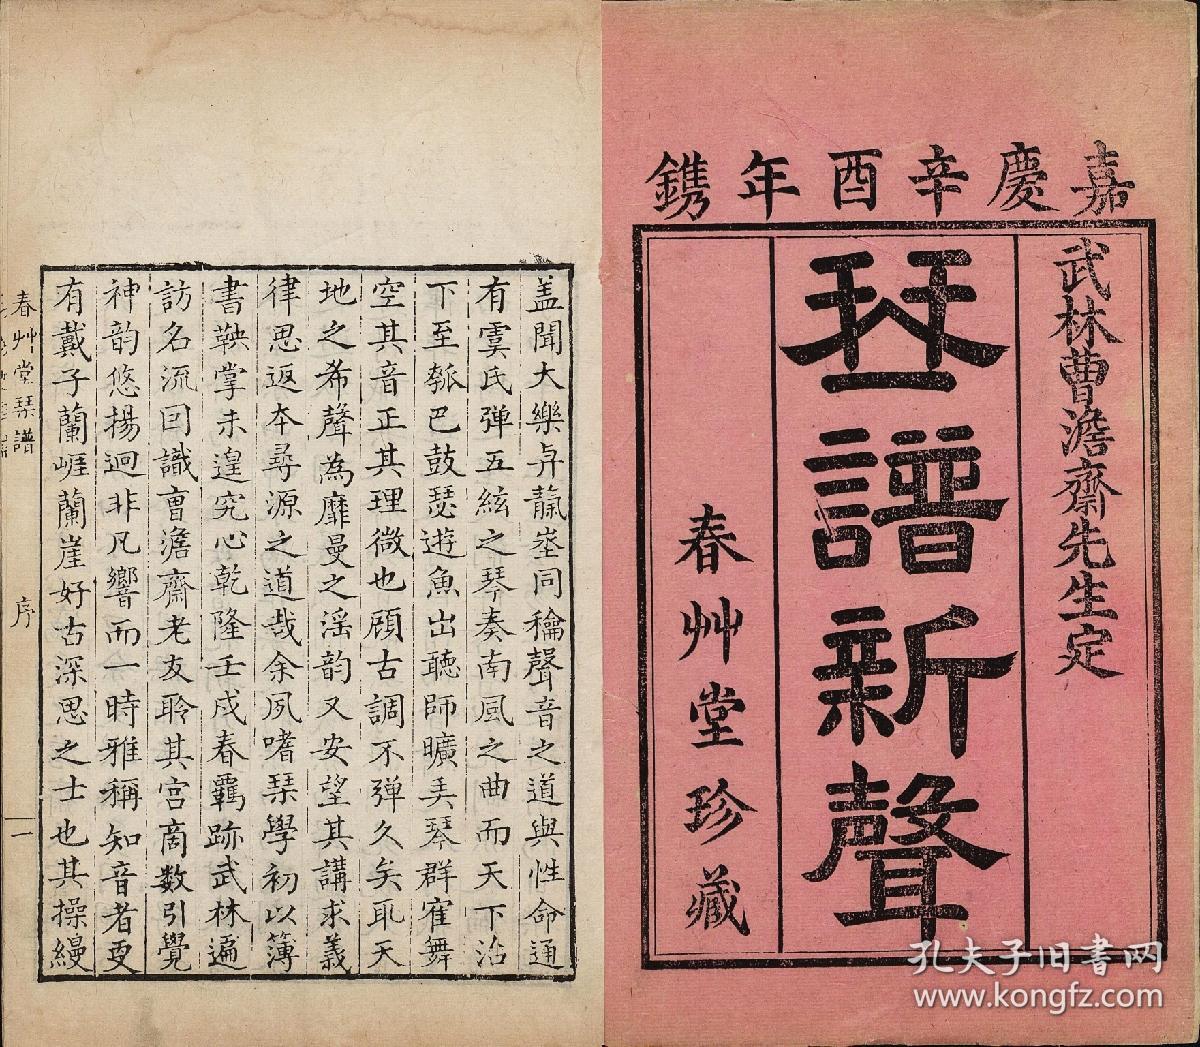 嘉慶辛酉年鐫
武林曹澹齋先生定
琴譜新聲
春艸堂珍藏
盖聞大樂與天地同龢聲音之道與性命通
有虞氏弹五絃之琴奏南風之曲而天下治
下至瓠巴鼓瑟遊魚出聽師曠美琴群雀舞
空其音正其理微也顧古調不弹久矣取天
地之希聲為靡曼之淫韵又安望其講求義
律思返本尋源之道哉余夙嗜琹學初以簿
書鞅掌未遑究心乾隆壬戌春羈跡武林遍
訪名流囙識曹澹齋老友聆其宮商数引覺
神韵悠揚迥非凡響而一時雅稱知音者更
有戴子蘭崕蘭崖好古深思之士也其操縵
春艸堂琹譜
序
一
孔夫子旧书网
www.kongfz.com